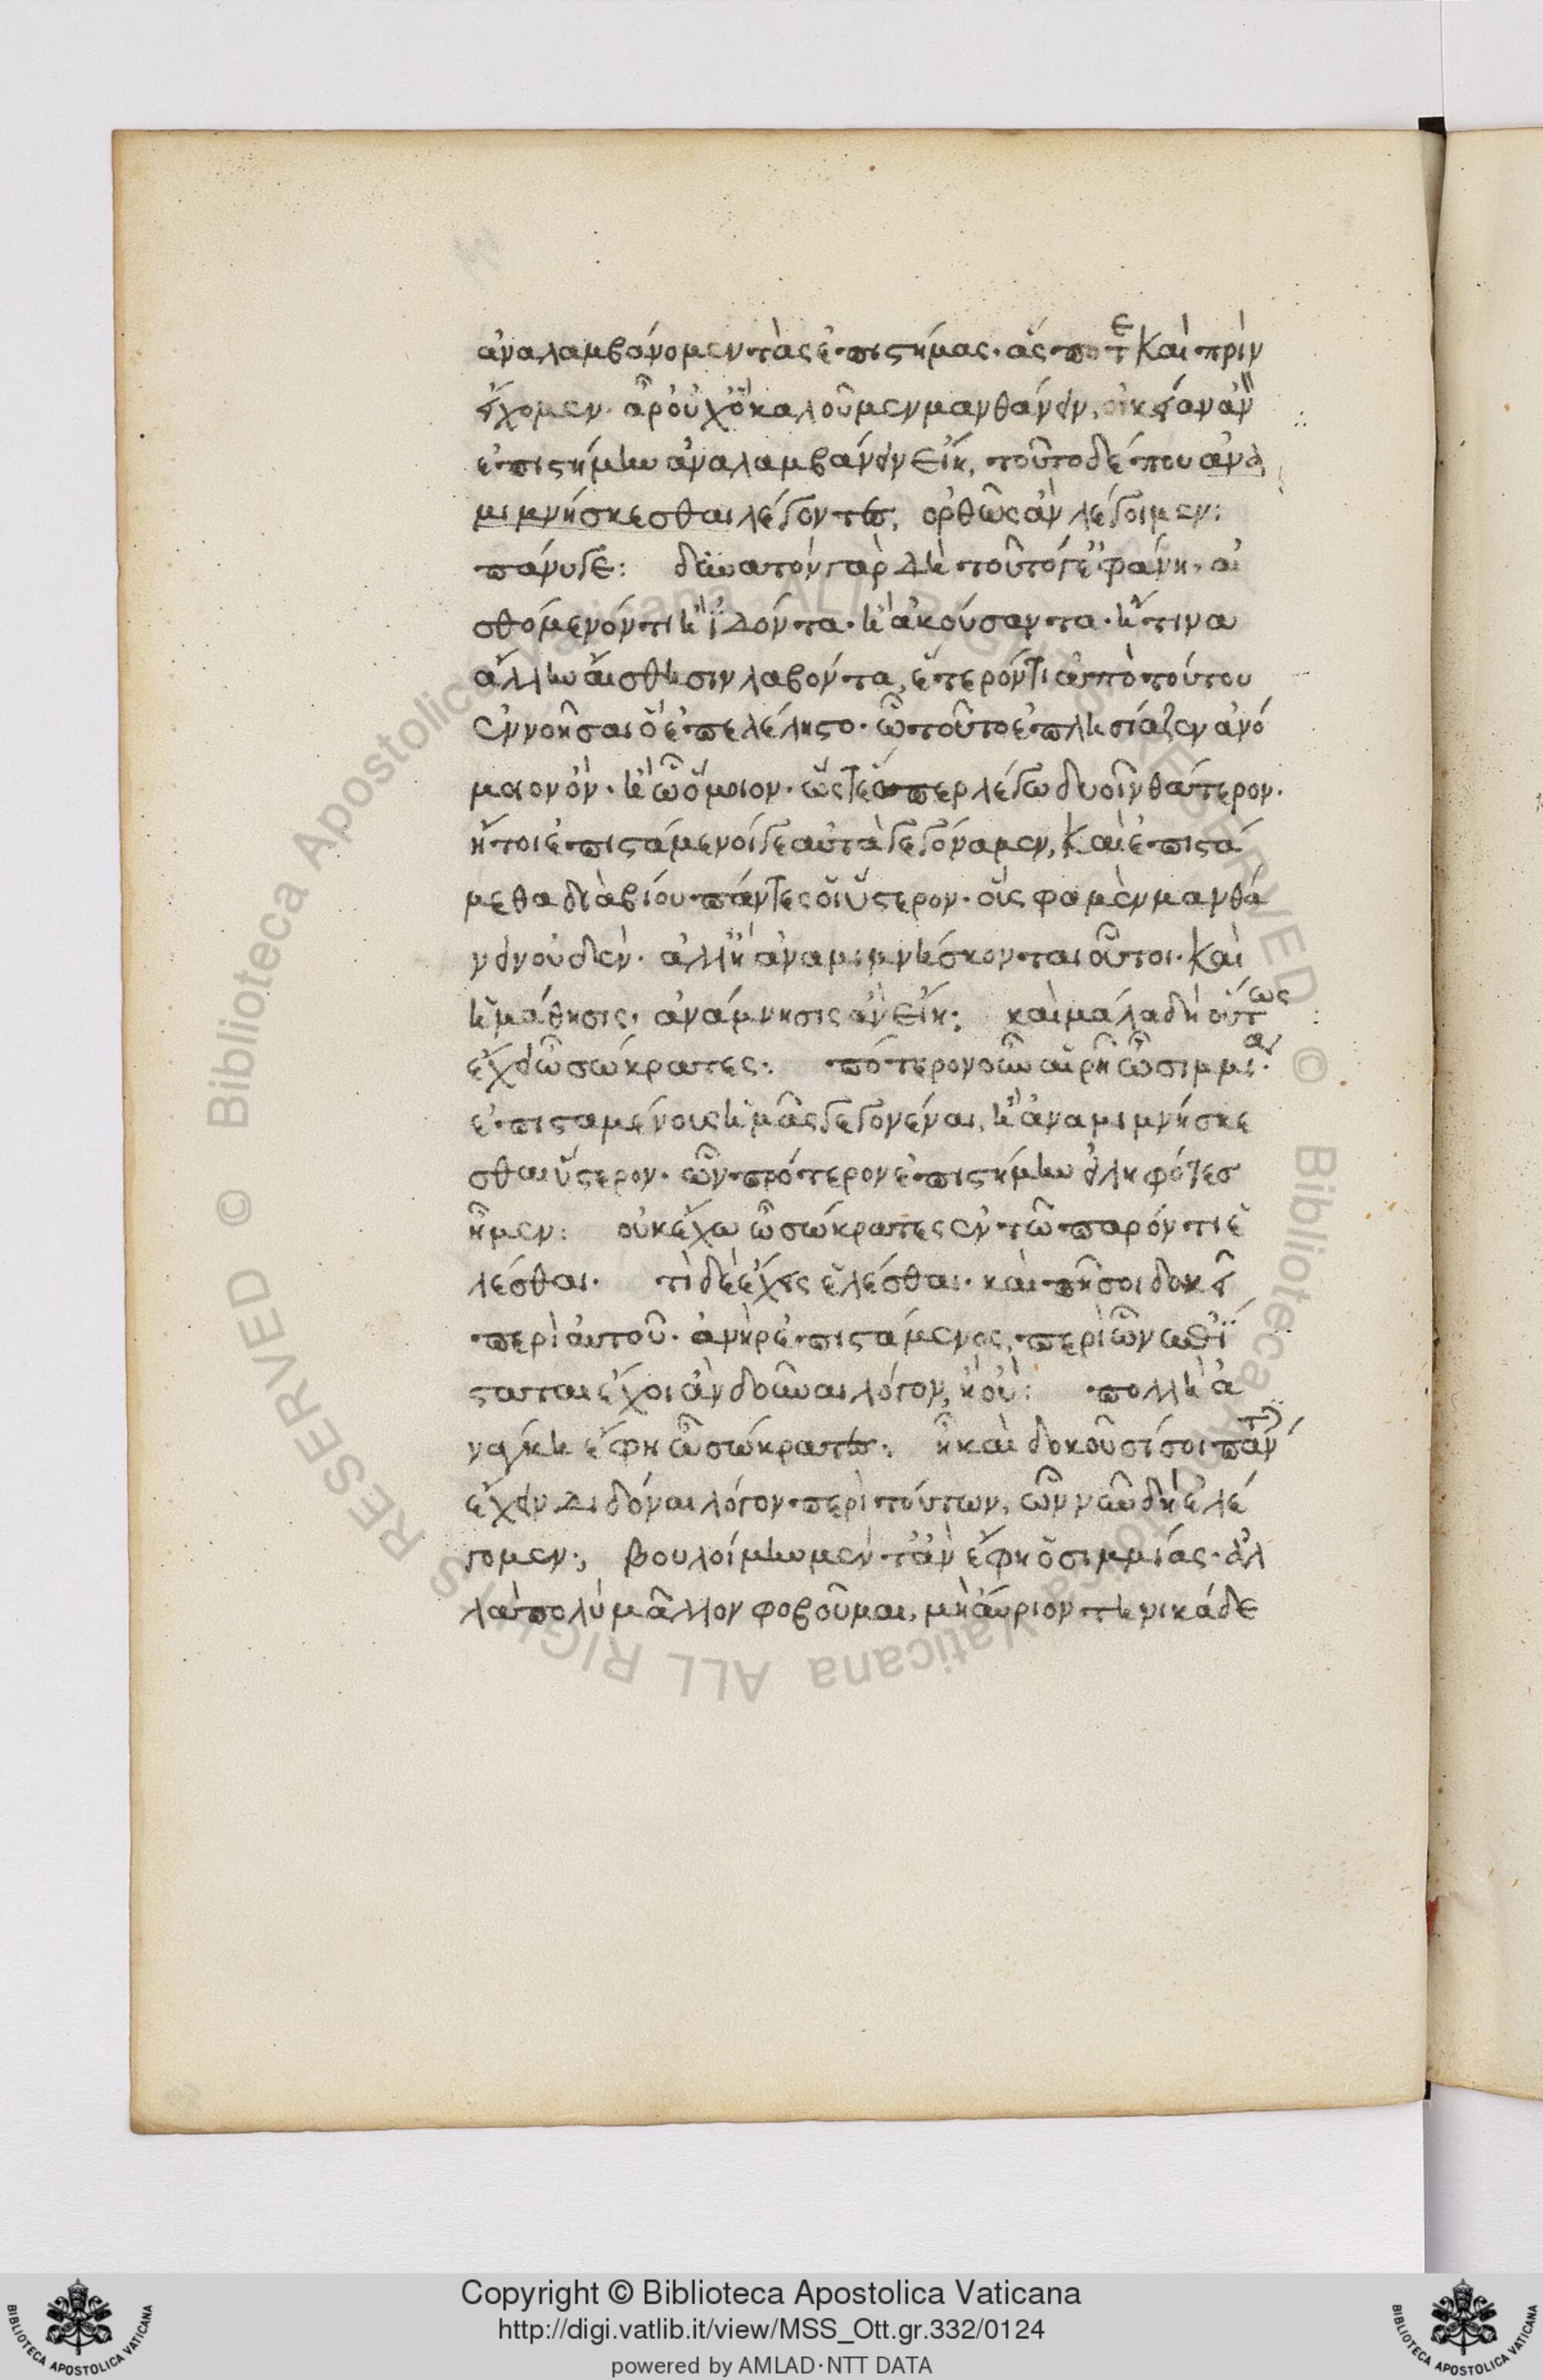 ἀναλαμβάνομεν τὰς ἐπιστήμας· ἅς ποτε καὶ πρὶν
εἴχομεν· ἆρ' οὐχ ὃ καλοῦμεν μανθάνειν, οἰκείαν ἂν
ἐπιστήμην ἀναλαμβάνειν εἴη, τοῦτο δέ που ἀνα
μιμνήσκεσθαι λέγοντες, ὀρθῶς ἂν λέγοιμεν;
πάνυ γε: δυνατὸν γὰρ δὴ τοῦτό γε ἐφάνη, αἰ
σθόμενόν τι ἢ ἰδόντα· ἢ ἀκούσαντα· ἤ τινα
ἄλλην αἴσθησιν λαβόντα, ἕτερόν τι ἀπὸ τούτου
ἐννοῆσαι ὃ ἐπελέληστο· ᾧ τοῦτο ἐπλησίαζεν ἀνό
μοιον ὄν· ἢ ᾧ ὅμοιον· ὥστε ὅπερ λέγω δυοῖν θάτερον·
ἤτοι ἐπιστάμενοί γε αὐτὰ γεγόναμεν, καὶ ἐπιστά
μεθα διὰ βίου πάντες οἳ ὕστερον· οὕς φαμὲν μανθά
νειν οὐδὲν· ἀλλ' ἢ ἀναμιμνήσκονται οὗτοι· καὶ
ἡ μάθησις· ἀνάμνησις ἂν εἴη; καὶ μάλα δὴ οὕτως
ἔχει ὦ σώκρατες: πότερον οὖν αἱρῇ ὦ σιμμία·
ἐπισταμένους ἡμᾶς γεγονέναι, ἢ ἀναμιμνήσκε
σθαι ὕστερον· ὧν πρότερον ἐπιστήμην εἰληφότες
ἦμεν: οὐκ ἔχω ὦ σώκρατες ἐν τῷ παρόντι ἑ
λέσθαι· τί δὲ ἔχεις ἑλέσθαι· καὶ πῆ σοι δοκεῖ
περὶ αὐτοῦ· ἀνὴρ ἐπιστάμενος, περὶ ὧν ἐπί
σταται ἔχοι ἂν δοῦναι λόγον, ἢ οὔ: πολλὴ ἀ
νάγκη ἔφη ὦ σώκρατες: ἦ καὶ δοκοῦσί σοι πάντες
ἔχειν διδόναι λόγον περὶ τούτων, ὧν νῦν δὴ ἐλέ
γομεν; βουλοίμην μέν τ' ἂν ἔφη ὁ σιμμίας· ἀλ
λὰ πολὺ μᾶλλον φοβοῦμαι, μὴ αὔριον τηνικάδε
Copyright © Biblioteca Apostolica Vaticana
http://digi.vatlib.it/view/MSS_Ott.gr.332/0124
powered by AMLAD·NTT DATA